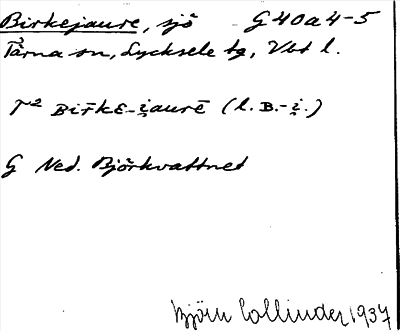 Birkejaure, sjö G 40 a 4-5
Tärna sn, Lycksele lg, Vbt l.
T² BIR̄KE-i̯aurē (l. B.-i̯.)
G Ned. Björkvattnet
Björn Collinder 1937